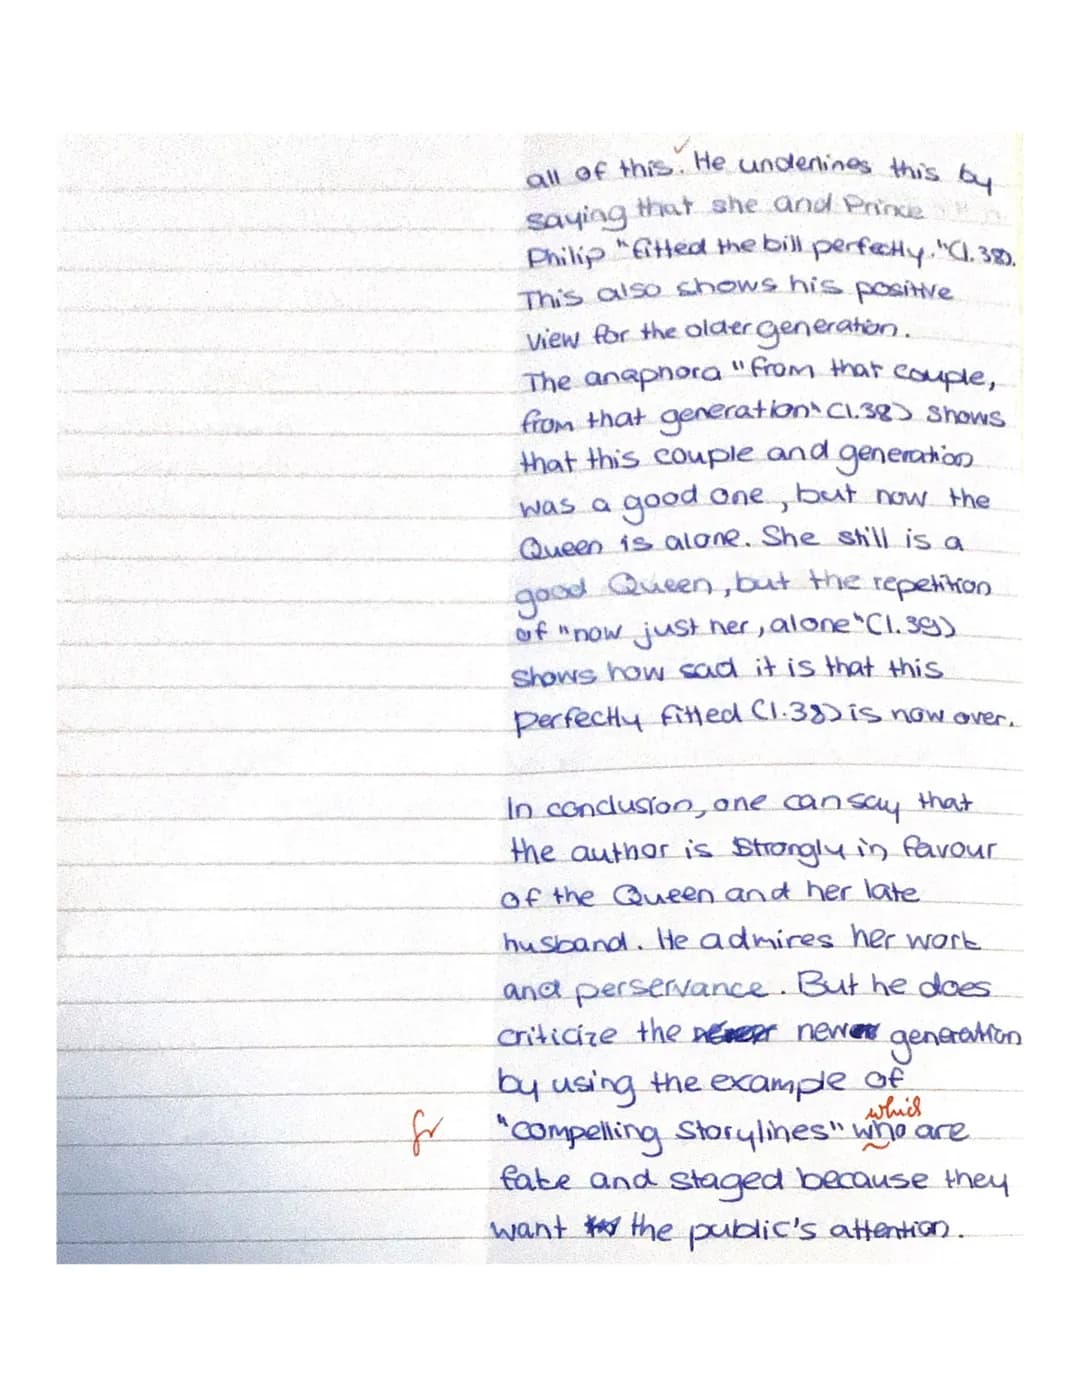 all of this. He underlines this by
saying that she and Prince
Philip "fitted the bill perfectly."(l.38).
This also shows his positive
view for the older generation.
The anaphora "from that couple,
from that generation" (l.38) shows
that this couple and generation
was a good one, but now the
Queen is alone. She still is a
good Queen, but the repetition
of "now just her, alone" (l.39)
shows how sad it is that this
perfectly fitted (l.38) is now over.
In conclusion, one can say that
the author is strongly in favour
of the Queen and her late
husband. He admires her work
and perservance. But he does
criticize the new generation
by using the example of
which
"compelling Storylines" who are
fake and staged because they
want the public's attention.